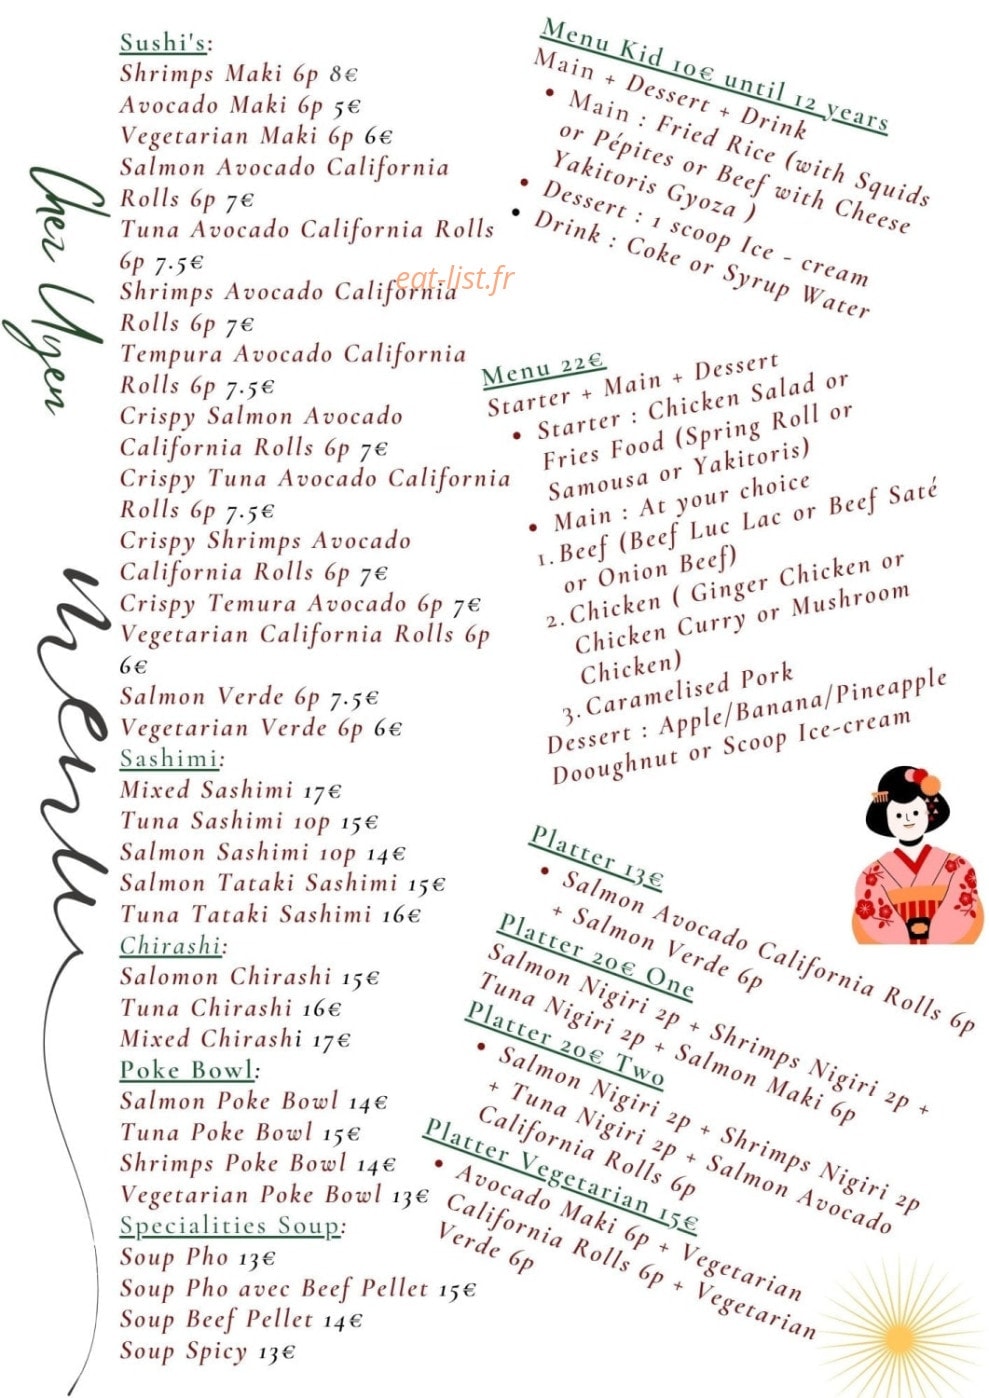 Chez Uyen
menu
Sushi's:
Shrimps Maki 6p 8€
Avocado Maki 6p 5€
Vegetarian Maki 6p 6€
Salmon Avocado California
Rolls 6p 7€
Tuna Avocado California Rolls
6p 7.5€
Shrimps Avocado California
Rolls 6p 7€
Tempura Avocado California
Rolls 6p 7.5€
Crispy Salmon Avocado
California Rolls 6p 7€
Crispy Tuna Avocado California
Rolls 6p 7.5€
Crispy Shrimps Avocado
California Rolls 6p 7€
Crispy Temura Avocado 6p 7€
Vegetarian California Rolls 6p
6€
Salmon Verde 6p 7.5€
Vegetarian Verde 6p 6€
Sashimi:
Mixed Sashimi 17€
Tuna Sashimi 10p 15€
Salmon Sashimi 10p 14€
Salmon Tataki Sashimi 15€
Tuna Tataki Sashimi 16€
Chirashi:
Salomon Chirashi 15€
Tuna Chirashi 16€
Mixed Chirashi 17€
Poke Bowl:
Salmon Poke Bowl 14€
Tuna Poke Bowl 15€
Shrimps Poke Bowl 14€
Vegetarian Poke Bowl 13€
Specialities Soup:
Soup Pho 13€
Soup Pho avec Beef Pellet 15€
Soup Beef Pellet 14€
Soup Spicy 13€
eat-list.fr
Menu Kid 10€ until 12 years
Main + Dessert + Drink
• Main : Fried Rice (with Squids
or Pépites or Beef with Cheese
Yakitoris Gyoza )
• Dessert : 1 scoop Ice - cream
• Drink : Coke or Syrup Water
Menu 22€
Starter + Main + Dessert
• Starter : Chicken Salad or
Fries Food (Spring Roll or
Samousa or Yakitoris)
• Main : At your choice
1. Beef (Beef Luc Lac or Beef Saté
or Onion Beef)
2. Chicken ( Ginger Chicken or
Chicken Curry or Mushroom
Chicken)
3. Caramelised Pork
Dessert : Apple/Banana/Pineapple
Dooughnut or Scoop Ice-cream
Platter 13€
• Salmon Avocado California Rolls 6p
+ Salmon Verde 6p
Platter 20€ One
Salmon Nigiri 2p + Shrimps Nigiri 2p +
Tuna Nigiri 2p + Salmon Maki 6p
Platter 20€ Two
• Salmon Nigiri 2p + Shrimps Nigiri 2p
+ Tuna Nigiri 2p + Salmon Avocado
California Rolls 6p
Platter Vegetarian 15€
• Avocado Maki 6p + Vegetarian
California Rolls 6p + Vegetarian
Verde 6p